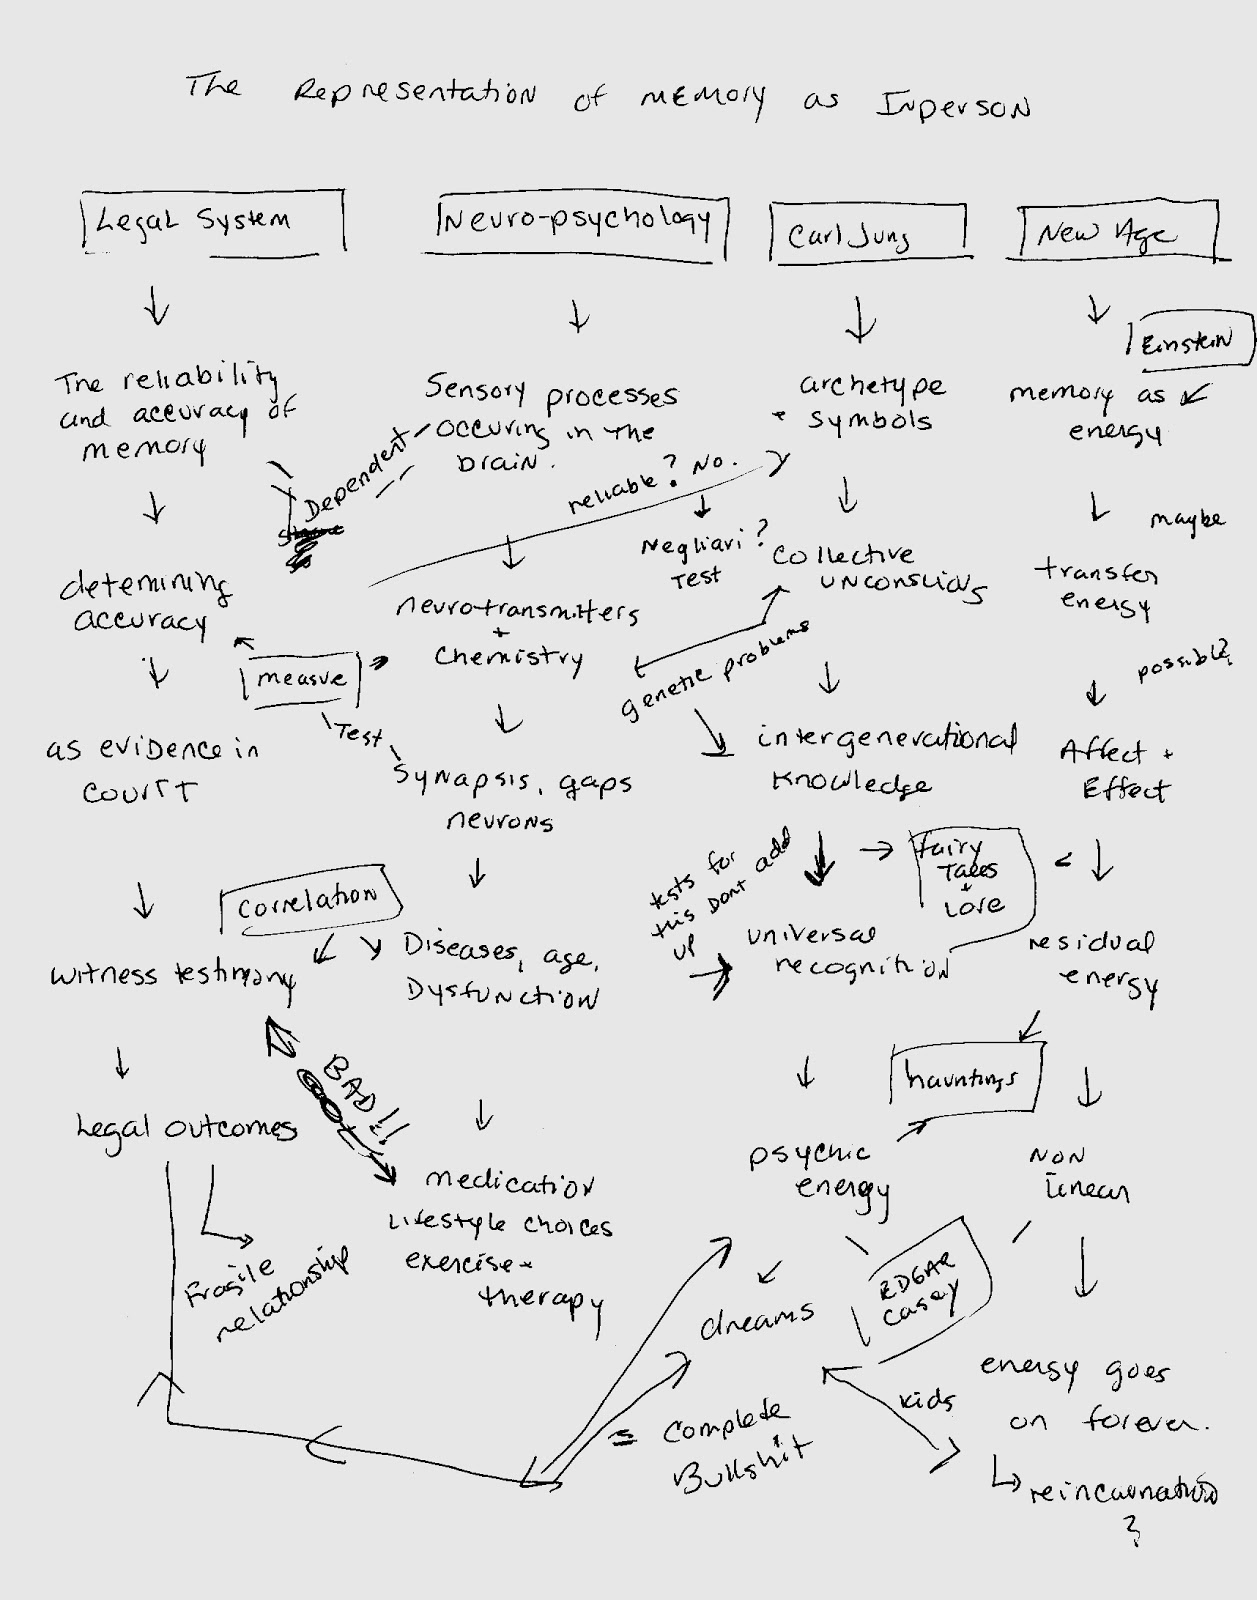 The Representation of memory as Inperson
Legal System
Neuro-psychology
Carl Jung
New Age
Einstein
The reliability
and accuracy of
memory
Sensory processes
occuring in the
brain.
archetype
+ symbols
memory as
energy
Dependent
reliable? No.
Negliari?
Test
maybe
detemining
accuracy
neurotransmitters
+
chemistry
collective
unconscious
transfer
energy
measure
Test
genetic problems
possible?
as evidence in
court
Synapsis, gaps
neurons
intergenerational
knowledge
Affect +
Effect
Correlation
tests for
this Dont add
up
fairy
Tales
+
Lore
witness testimony
Diseases, age,
Dysfunction
universal
recognition
residual
energy
BAD!!
hauntings
Legal outcomes
medication
Lifestyle choices
exercise +
therapy
psychic
energy
Non
Linear
Fragile
relationship
dreams
EDGAR
Casey
energy goes
on forever.
kids
= Complete
Bullshit
reincarnation
?